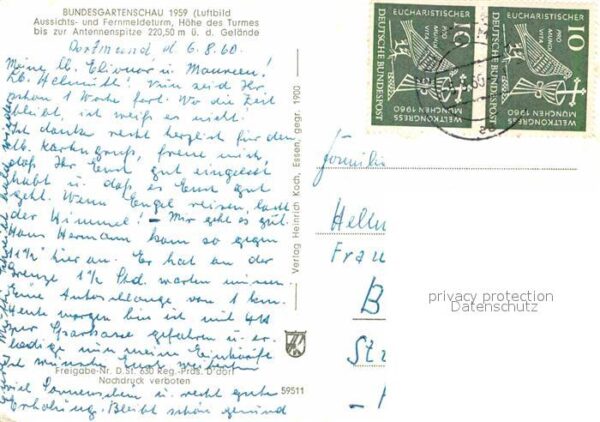 BUNDESGARTENSCHAU 1959 (Luftbild
Aussichts- und Fernmeldeturm, Höhe des Turmes
bis zur Antennenspitze 220,50 m ü. d. Gelände
Dortmund d 6.8.60.
Meine lb. Elionor u. Maureen!
Lb. Helmuth! Nun seid Ihr
schon 1 Woche fort. Wo die Zeit
bleibt, ich weiß es nicht!
Ich danke recht herzlich für den
lb. Kartengruß, freue mich,
daß Ihr Euch gut eingelebt
habt u. daß es Euch gut
geht. Wenn Engel reisen, lacht
der Himmel! - Mir geht es gut.
Hans Hermann kam so gegen
hier an. Er hat an der
Grenze 1½ Std. warten müssen.
Eine Autoschlange von 1 km.
Heute morgen bin ich mit
Sparkasse gefahren u. er-
ledige nun meine Einkäufe
viel Sonnenschein u. recht gute
Erholung. Bleibt schön gesund
Freigabe-Nr. D. St. 630 Reg.-Präs. D'dorf
Nachdruck verboten
59511
Verlag Heinrich Koch, Essen, gegr. 1900
10
PRO MUNDI VITA
WELTKONGRESS
MÜNCHEN 1960
DEUTSCHE BUNDESPOST
10
PRO MUNDI VITA
WELTKONGRESS
MÜNCHEN 1960
DEUTSCHE BUNDESPOST
Familie
Hellm
Frau
B
Str
privacy protection
Datenschutz